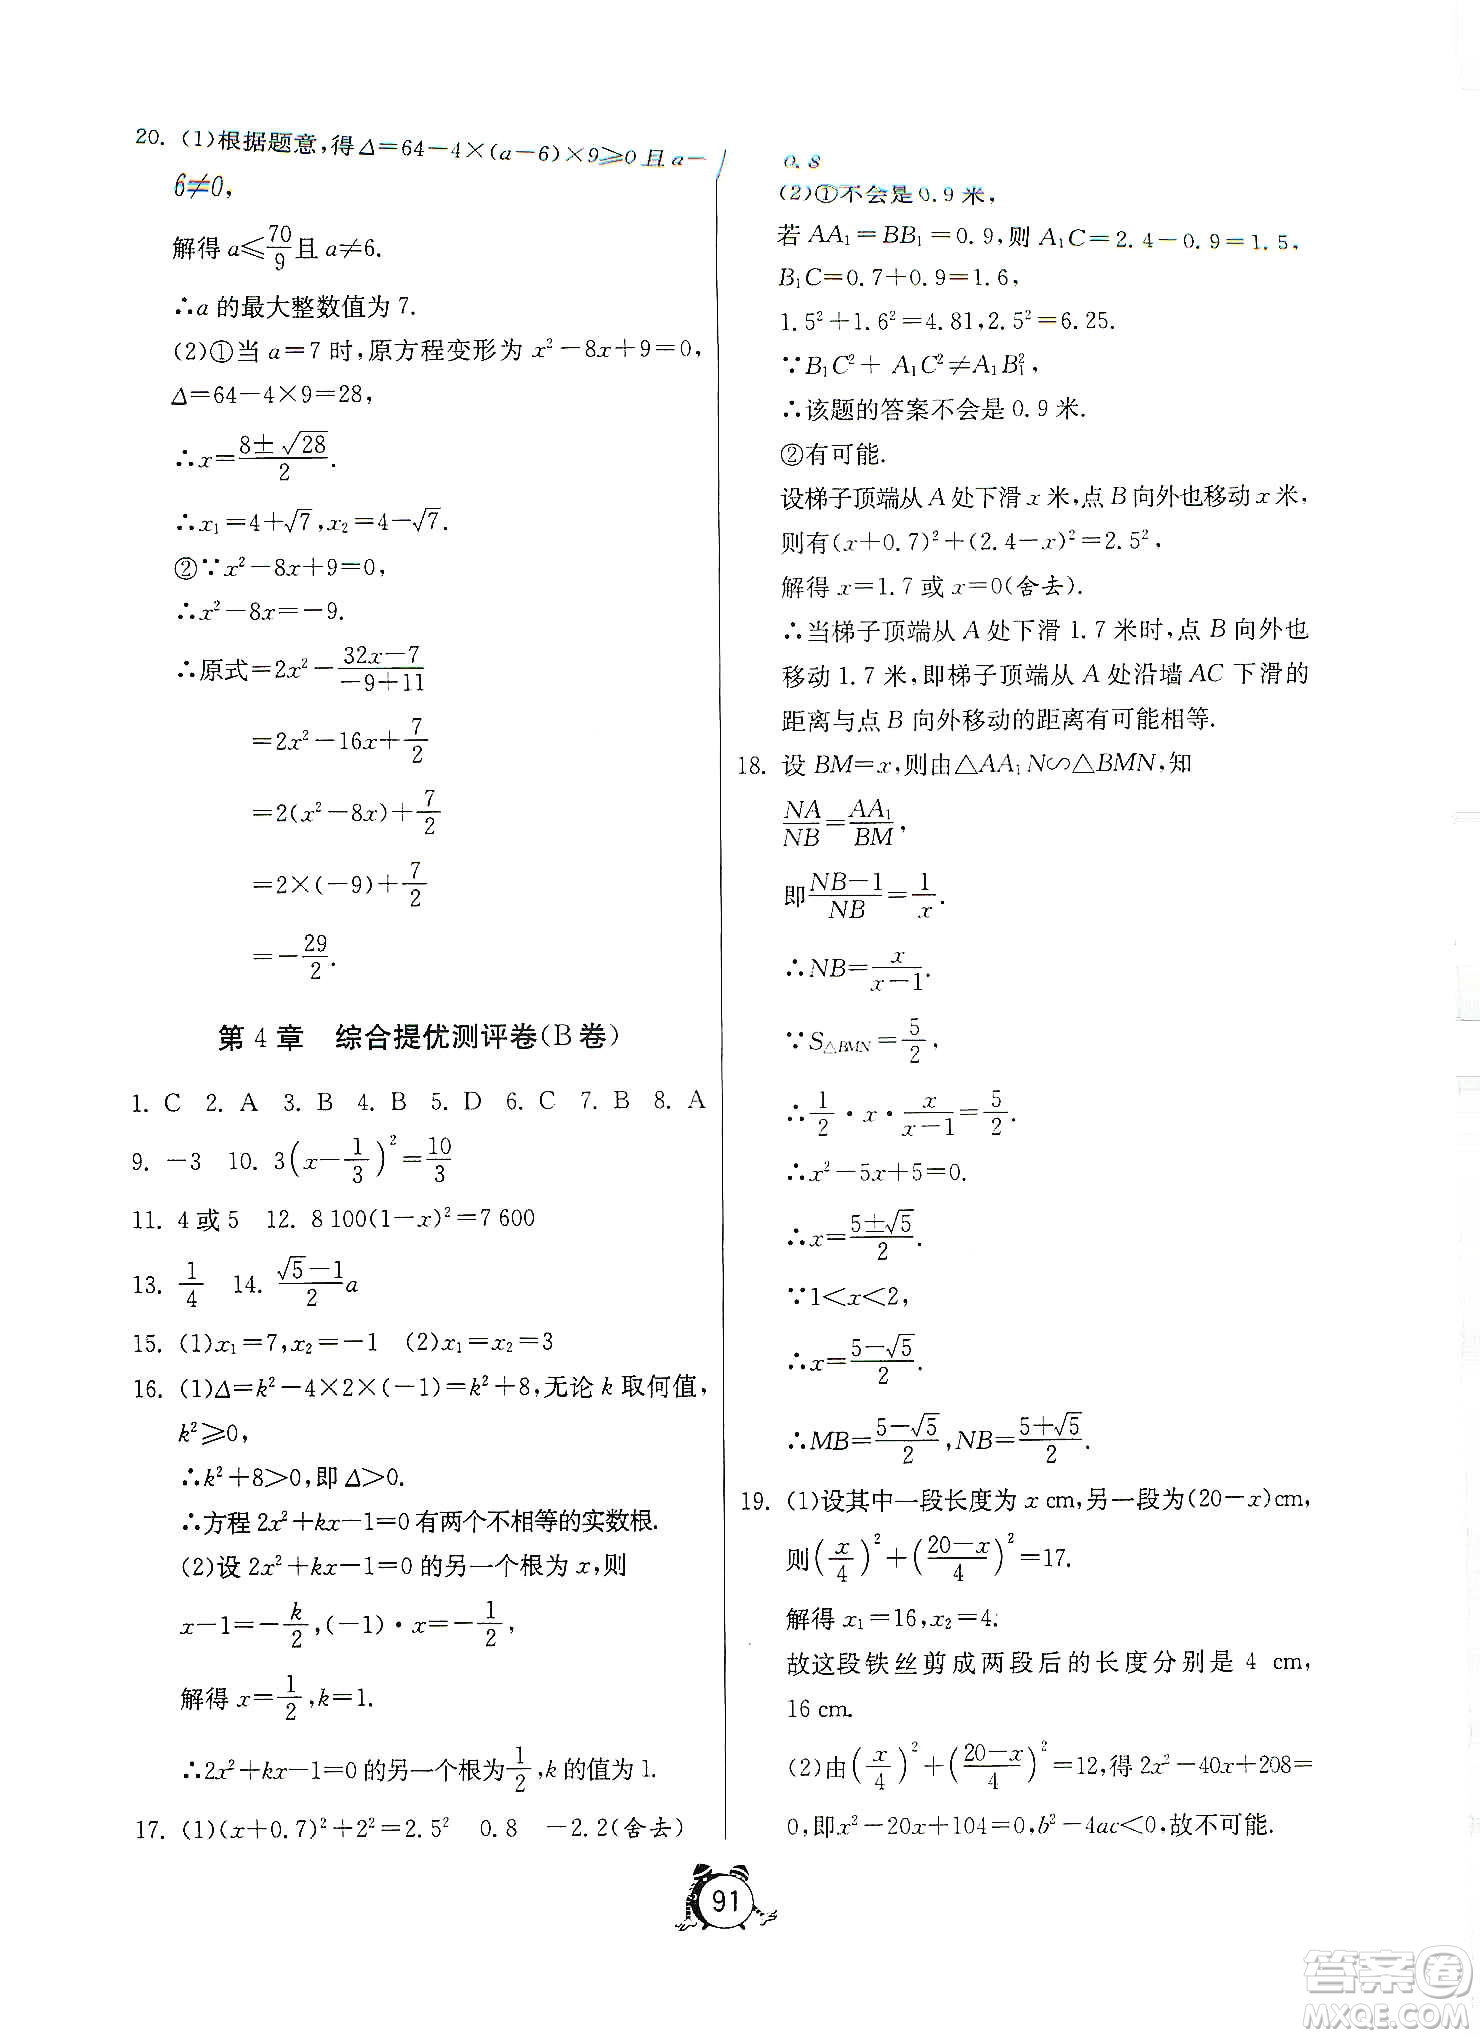 20. (1)根据题意,得Δ=64-4×(a-6)×9≥0且a-
6≠0,
解得a≤70/9且a≠6.
∴a的最大整数值为7.
(2)①当a=7时,原方程变形为x²-8x+9=0,
Δ=64-4×9=28,
∴x=(8±√28)/2.
∴x₁=4+√7,x₂=4-√7.
②∵x²-8x+9=0,
∴x²-8x=-9.
∴原式=2x²-(32x-7)/(-9+11)
=2x²-16x+7/2
=2(x²-8x)+7/2
=2×(-9)+7/2
=-29/2.
第4章 综合提优测评卷(B卷)
1. C 2. A 3. B 4. B 5. D 6. C 7. B 8. A
9. -3 10. 3(x-1/3)²=10/3
11. 4或5 12. 8 100(1-x)²=7 600
13. 1/4 14. (√5-1)/2 a
15. (1)x₁=7,x₂=-1 (2)x₁=x₂=3
16. (1)Δ=k²-4×2×(-1)=k²+8,无论k取何值,
k²≥0,
∴k²+8>0,即Δ>0.
∴方程2x²+kx-1=0有两个不相等的实数根.
(2)设2x²+kx-1=0的另一个根为x,则
x-1=-k/2,(-1)·x=-1/2,
解得x=1/2,k=1.
∴2x²+kx-1=0的另一个根为1/2,k的值为1.
17. (1)(x+0.7)²+2²=2.5² 0.8 -2.2(舍去)
0.8
(2)①不会是0.9米,
若AA₁=BB₁=0.9,则A₁C=2.4-0.9=1.5,
B₁C=0.7+0.9=1.6,
1.5²+1.6²=4.81,2.5²=6.25.
∵B₁C²+A₁C²≠A₁B₁²,
∴该题的答案不会是0.9米.
②有可能.
设梯子顶端从A处下滑x米,点B向外也移动x米,
则有(x+0.7)²+(2.4-x)²=2.5²,
解得x=1.7或x=0(舍去).
∴当梯子顶端从A处下滑1.7米时,点B向外也
移动1.7米,即梯子顶端从A处沿墙AC下滑的
距离与点B向外移动的距离有可能相等.
18. 设BM=x,则由△AA₁N∽△BMN,知
NA/NB=AA₁/BM,
即(NB-1)/NB=1/x.
∴NB=x/(x-1).
∵S△BMN=5/2,
∴1/2·x·x/(x-1)=5/2.
∴x²-5x+5=0.
∴x=(5±√5)/2.
∵1<x<2,
∴x=(5-√5)/2.
∴MB=(5-√5)/2,NB=(5+√5)/2.
19. (1)设其中一段长度为x cm,另一段为(20-x)cm,
则(x/4)²+((20-x)/4)²=17.
解得x₁=16,x₂=4.
故这段铁丝剪成两段后的长度分别是4 cm,
16 cm.
(2)由(x/4)²+((20-x)/4)²=12,得2x²-40x+208=
0,即x²-20x+104=0,b²-4ac<0,故不可能.
91
答案圈
MXQE.COM